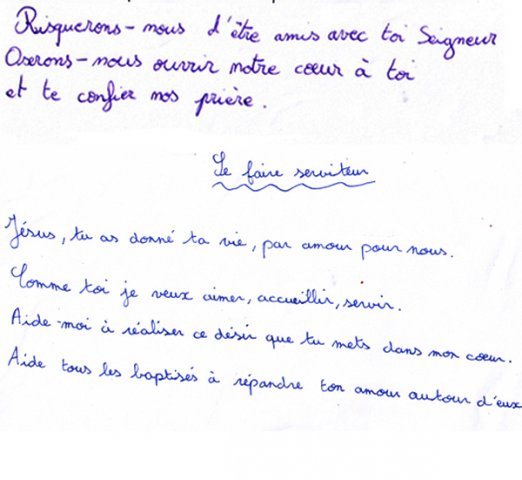 Risquerons-nous d'être amis avec toi Seigneur
Oserons-nous ouvrir notre cœur à toi
et te confier nos prière.
Se faire serviteur
Jésus, tu as donné ta vie, par amour pour nous.
Comme toi je veux aimer, accueillir, servir.
Aide-moi à réaliser ce désir que tu mets dans mon cœur.
Aide tous les baptisés à répandre ton amour autour d'eux